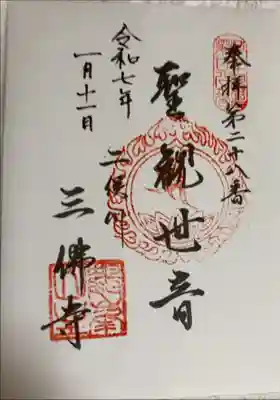 奉拝 第二十八番
聖観世音
二俣川
三佛寺
令和七年
一月十一日